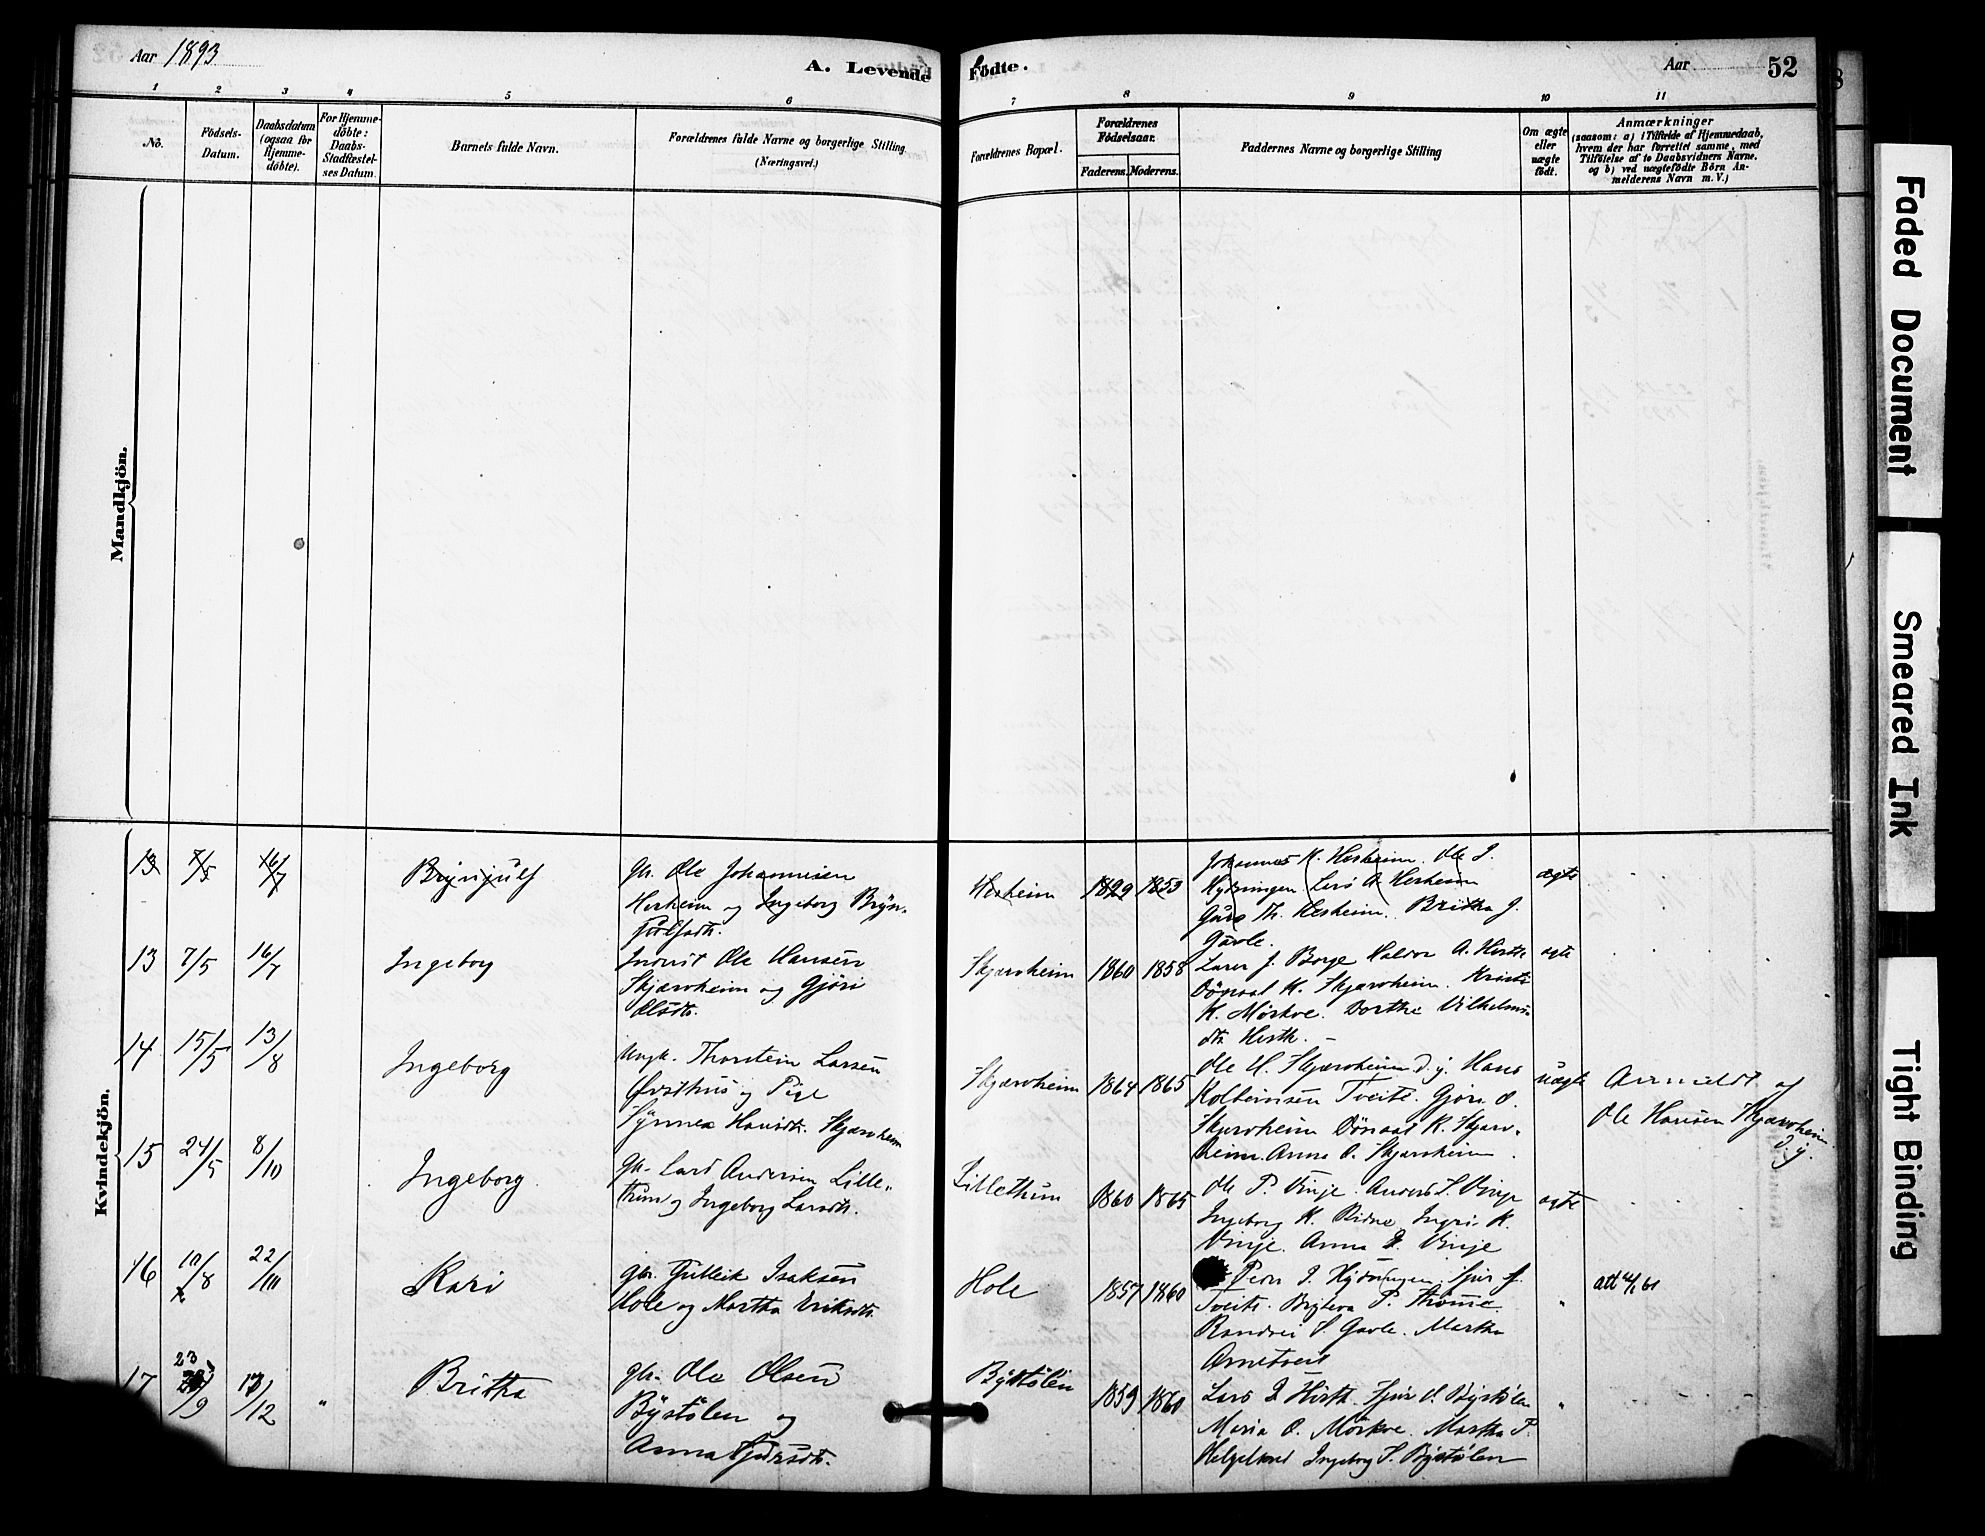 Aar 1893
A. Levende Födte.
Aar 52
1 2 3 4 5 6 7 8 9 10 11
No.
Födsels-
Datum.
Daabsdatum
(ogsaa for
Hjemme-
döbte).
For Hjemme-
döbte:
Daabs-
Stadfæstel-
ses Datum.
Barnets fulde Navn.
Forældrenes fulde Navne og borgerlige Stilling
(Næringsvei.)
Forældrenes Bopæl.
Forældrenes
Födselsaar.
Faderens. Moderens.
Faddernes Navne og borgerlige Stilling
Om ægte
eller
uægte
födt.
Anmærkninger
(saasom: a) i Tilfælde af Hjemmedaab,
hvem der har forrettet samme, med
Tilföielse af to Daabsvidners Navne,
og b) ved uægtefödte Börn An-
melderens Navn m. V.)
Mandkjön.
Kvindekjön.
13 7/5 16/7 Brynjulf
Gbr. Ole Johannesen
Hersheim og Ingeborg Bryn-
julfsdtr.
Hersheim 1829 1853
Johannes K. Hersheim. Ole I.
Hydningen Lars A. Hersheim
Guro Th. Hersheim. Britha J.
Gavle.
ægte
13 7/5 16/7 Ingeborg
Inderst Ole Hansen
Skjærvheim og Gjöri
Olsdtr.
Skjærvheim 1860 1858
Lars J. Borge Haldor A. Herth
K. Skjærvheim. Kristi
K. Mörkve. Dorthe Vilhelms-
dtr. Herth. –
ægte
14 15/5 13/8 Ingeborg
Ungk. Thorstein Larsen
Övsthus og Pige
Synneva Hansdtr. Skjærvheim
Skjærvheim 1864 1865
Ole H. Skjærvheim d.y. Hans
Kolbeinsen Tveite. Gjöri O.
Skjærvheim K. Skjærv-
heim. Anna O. Skjærvheim.
uægte
Anmeldt af
Ole Hansen Skjærvheim
d.y.
15 24/5 8/10 Ingeborg.
Gbr. Lars Andersen Lille-
thun og Ingeborg Larsdtr.
Lillethun 1860 1865
Ole P. Vinje. Anders L. Vinje
Ingeborg K. Ingri K.
Vinje. Anna L. Vinje
ægte
16 10/8 22/10 Kari
Gbr. Gulleik Isaksen
Hole og Martha Eriksdtr.
Hole 1857 1860
Peder I. Hydningen Sjur J.
Tveite. P.
Randvei S. Gavle. Martha
Arnetveit
"
att 61
17 23/9 17/12 " Britha
Gbr. Ole Olsen
Bystölen og
Anna Gjdursdtr.
Bystölen 1859 1860
Lars I. Hirth. Sjur O. Bystölen
Maria O. Mörkve. Martha P.
Helgeland Ingeborg S. Bystölen
"
Faded Document
Smeared Ink
Tight Binding